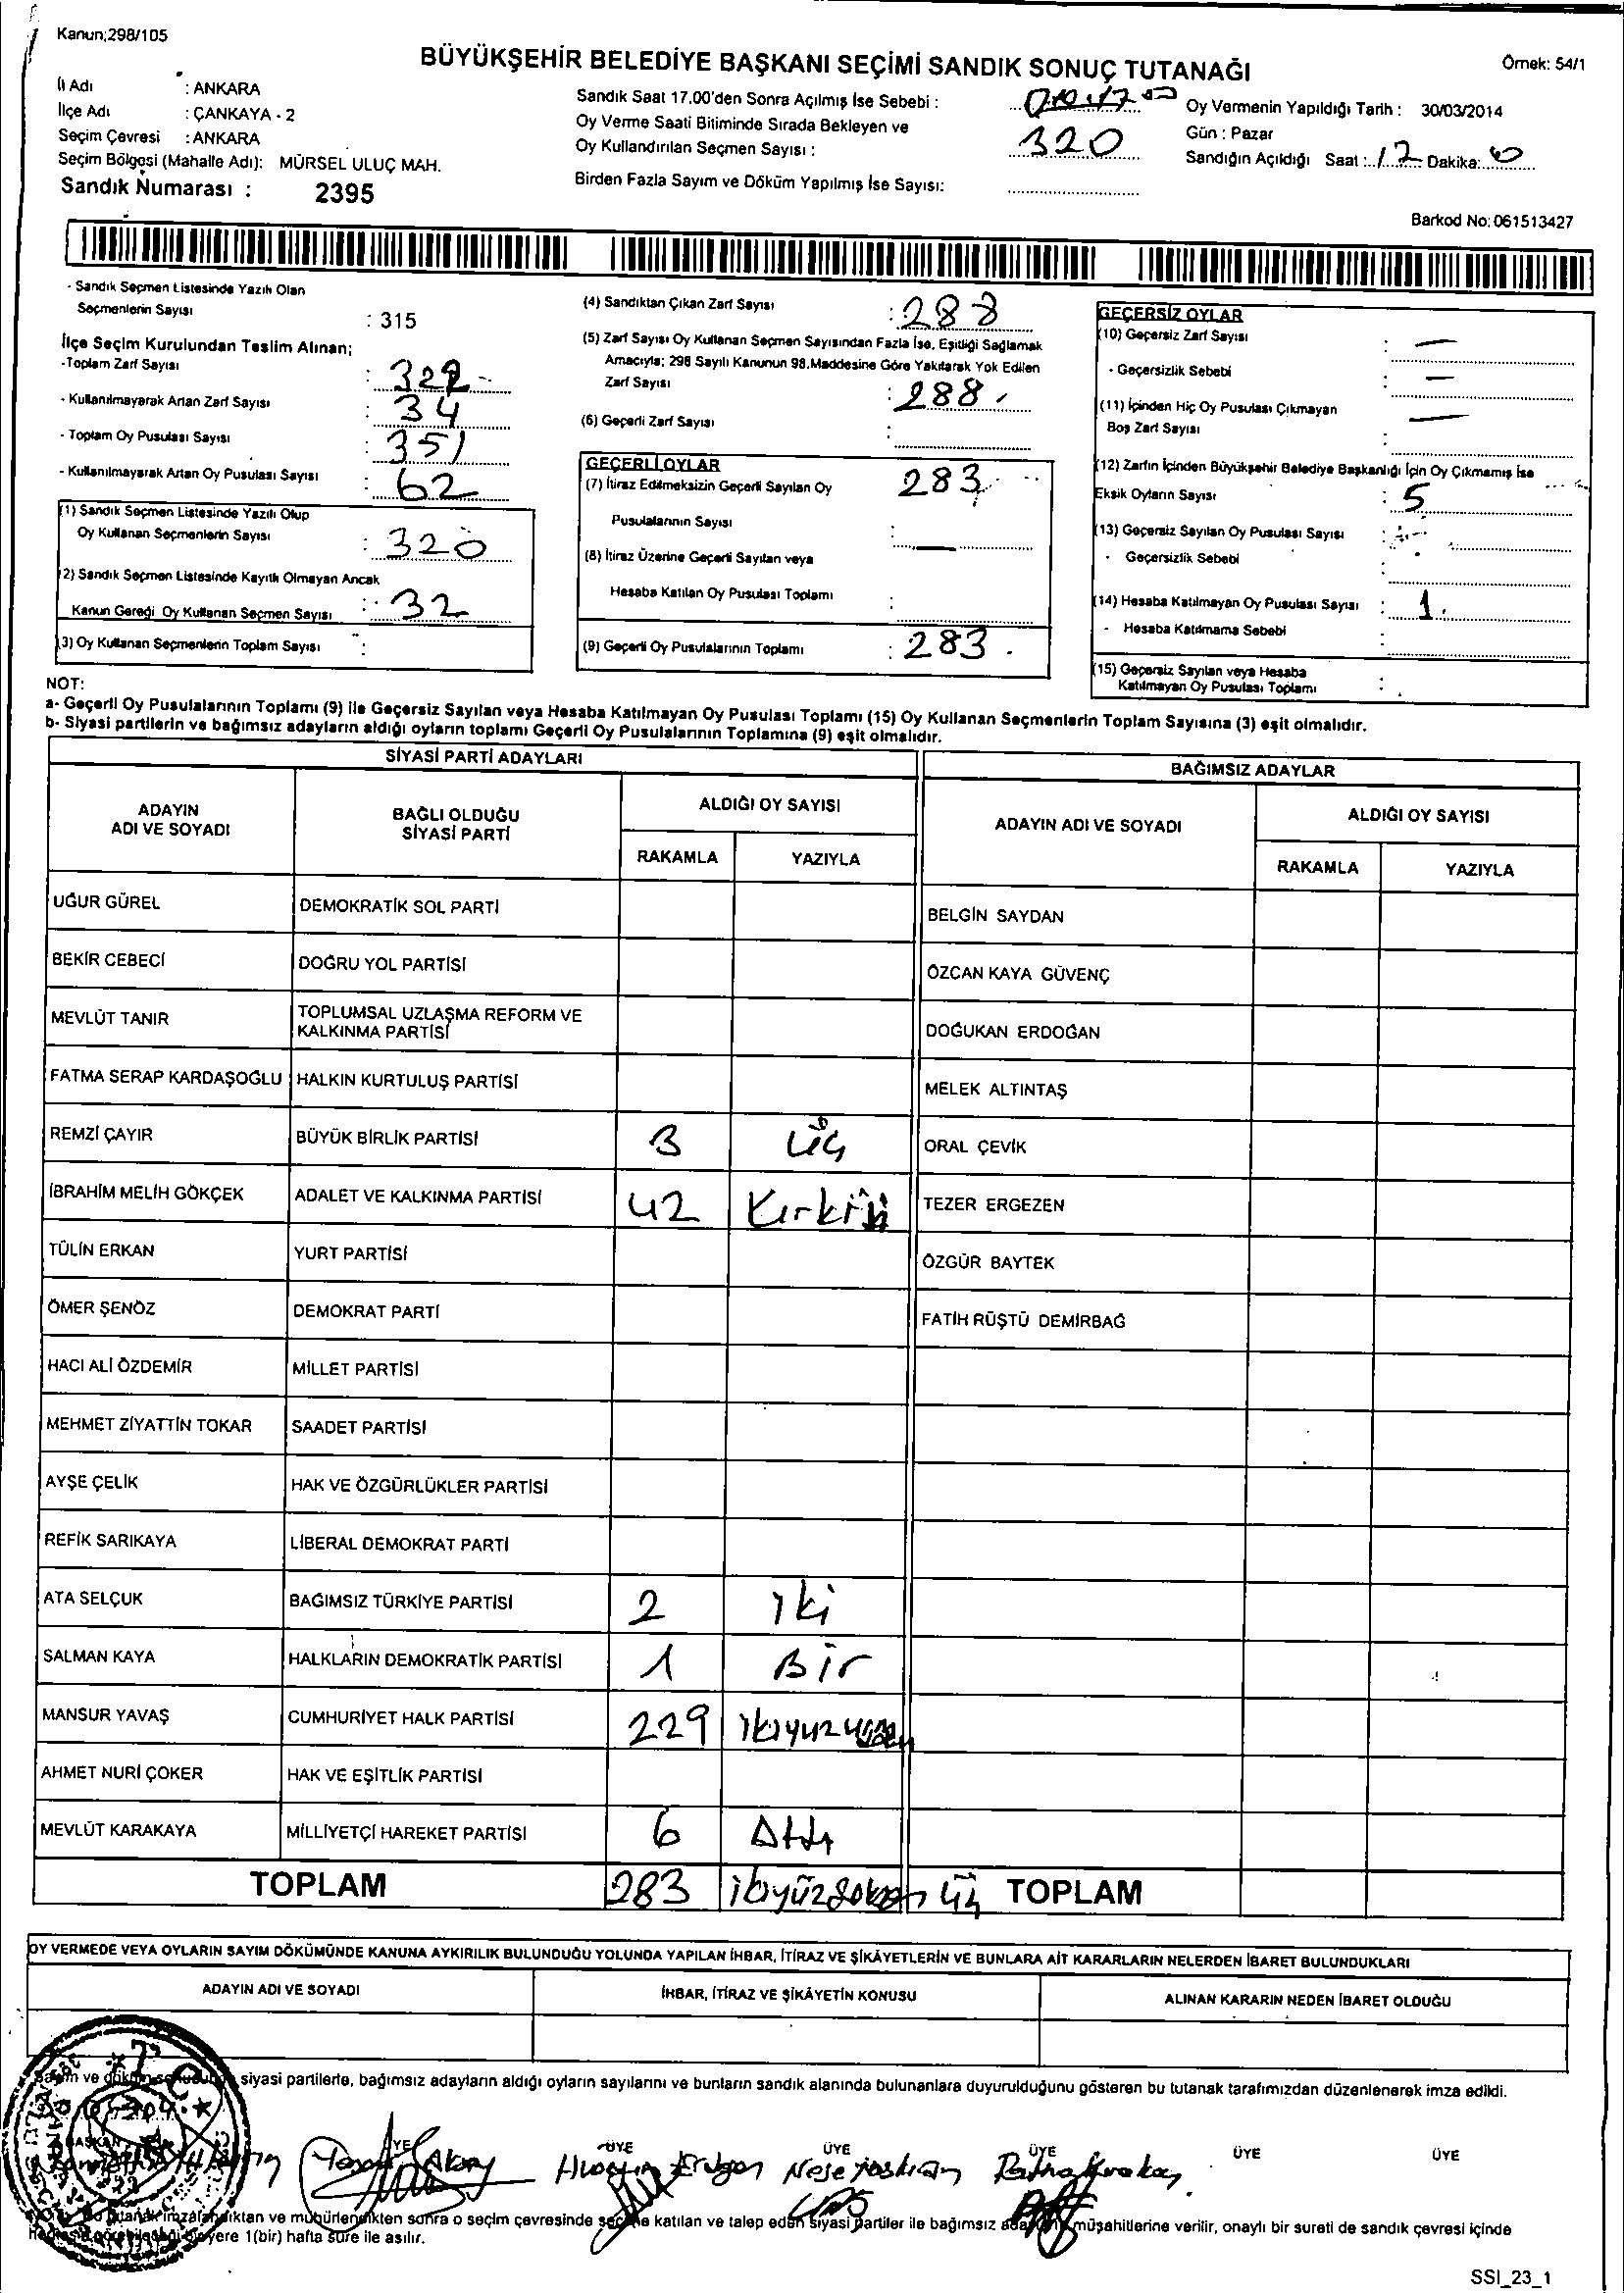 Kanun;298/105
BÜYÜKŞEHİR BELEDİYE BAŞKANI SEÇİMİ SANDIK SONUÇ TUTANAĞI
Örnek: 54/1
İl Adı : ANKARA
İlçe Adı : ÇANKAYA - 2
Seçim Çevresi : ANKARA
Seçim Bölgesi (Mahalle Adı): MÜRSEL ULUÇ MAH.
Sandık Numarası : 2395
Sandık Saat 17.00'den Sonra Açılmış İse Sebebi :
Oy Verme Saati Bitiminde Sırada Bekleyen ve
Oy Kullandırılan Seçmen Sayısı : 320
Birden Fazla Sayım ve Döküm Yapılmış İse Sayısı:
Oy Vermenin Yapıldığı Tarih : 30/03/2014
Gün : Pazar
Sandığın Açıldığı Saat : 17 Dakika:
Barkod No: 061513427
- Sandık Seçmen Listesinde Yazılı Olan
Seçmenlerin Sayısı : 315
İlçe Seçim Kurulundan Teslim Alınan;
-Toplam Zarf Sayısı : 322
- Kullanılmayarak Artan Zarf Sayısı : 34
- Toplam Oy Pusulası Sayısı : 351
- Kullanılmayarak Artan Oy Pusulası Sayısı : 62
(1) Sandık Seçmen Listesinde Yazılı Olup
Oy Kullanan Seçmenlerin Sayısı : 320
(2) Sandık Seçmen Listesinde Kayıtlı Olmayan Ancak
Kanun Gereği Oy Kullanan Seçmen Sayısı : 32
(3) Oy Kullanan Seçmenlerin Toplam Sayısı :
(4) Sandıktan Çıkan Zarf Sayısı : 288
(5) Zarf Sayısı Oy Kullanan Seçmen Sayısından Fazla İse, Eşitliği Sağlamak
Amacıyla; 298 Sayılı Kanunun 98.Maddesine Göre Yakılarak Yok Edilen
Zarf Sayısı : 288
(6) Geçerli Zarf Sayısı :
GEÇERLİ OYLAR
(7) İtiraz Edilmeksizin Geçerli Sayılan Oy 283
Pusulalarının Sayısı :
(8) İtiraz Üzerine Geçerli Sayılan veya —
Hesaba Katılan Oy Pusulası Toplamı :
(9) Geçerli Oy Pusulalarının Toplamı : 283
GEÇERSİZ OYLAR
(10) Geçersiz Zarf Sayısı : —
- Geçersizlik Sebebi : —
(11) İçinden Hiç Oy Pusulası Çıkmayan —
Boş Zarf Sayısı :
(12) Zarfın İçinden Büyükşehir Belediye Başkanlığı İçin Oy Çıkmamış İse
Eksik Oyların Sayısı : 5
(13) Geçersiz Sayılan Oy Pusulası Sayısı :
- Geçersizlik Sebebi :
(14) Hesaba Katılmayan Oy Pusulası Sayısı : 1
- Hesaba Katılmama Sebebi :
(15) Geçersiz Sayılan veya Hesaba
Katılmayan Oy Pusulası Toplamı :
NOT:
a- Geçerli Oy Pusulalarının Toplamı (9) ile Geçersiz Sayılan veya Hesaba Katılmayan Oy Pusulası Toplamı (15) Oy Kullanan Seçmenlerin Toplam Sayısına (3) eşit olmalıdır.
b- Siyasi partilerin ve bağımsız adayların aldığı oyların toplamı Geçerli Oy Pusulalarının Toplamına (9) eşit olmalıdır.
SİYASİ PARTİ ADAYLARI
BAĞIMSIZ ADAYLAR
ADAYIN ADI VE SOYADI
BAĞLI OLDUĞU SİYASİ PARTİ
ALDIĞI OY SAYISI
RAKAMLA YAZIYLA
ADAYIN ADI VE SOYADI
ALDIĞI OY SAYISI
RAKAMLA YAZIYLA
UĞUR GÜREL DEMOKRATİK SOL PARTİ BELGİN SAYDAN
BEKİR CEBECİ DOĞRU YOL PARTİSİ ÖZCAN KAYA GÜVENÇ
MEVLÜT TANIR TOPLUMSAL UZLAŞMA REFORM VE KALKINMA PARTİSİ DOĞUKAN ERDOĞAN
FATMA SERAP KARDAŞOĞLU HALKIN KURTULUŞ PARTİSİ MELEK ALTINTAŞ
REMZİ ÇAYIR BÜYÜK BİRLİK PARTİSİ 3 üç ORAL ÇEVİK
İBRAHİM MELİH GÖKÇEK ADALET VE KALKINMA PARTİSİ 42 Kırkiki TEZER ERGEZEN
TÜLİN ERKAN YURT PARTİSİ ÖZGÜR BAYTEK
ÖMER ŞENÖZ DEMOKRAT PARTİ FATİH RÜŞTÜ DEMİRBAĞ
HACI ALİ ÖZDEMİR MİLLET PARTİSİ
MEHMET ZİYATTİN TOKAR SAADET PARTİSİ
AYŞE ÇELİK HAK VE ÖZGÜRLÜKLER PARTİSİ
REFİK SARIKAYA LİBERAL DEMOKRAT PARTİ
ATA SELÇUK BAĞIMSIZ TÜRKİYE PARTİSİ 2 iki
SALMAN KAYA HALKLARIN DEMOKRATİK PARTİSİ 1 Bir
MANSUR YAVAŞ CUMHURİYET HALK PARTİSİ 229
AHMET NURİ ÇOKER HAK VE EŞİTLİK PARTİSİ
MEVLÜT KARAKAYA MİLLİYETÇİ HAREKET PARTİSİ 6 Altı
TOPLAM 283 ikiyüzseksen üç TOPLAM
OY VERMEDE VEYA OYLARIN SAYIM DÖKÜMÜNDE KANUNA AYKIRILIK BULUNDUĞU YOLUNDA YAPILAN İHBAR, İTİRAZ VE ŞİKÂYETLERİN VE BUNLARA AİT KARARLARIN NELERDEN İBARET BULUNDUKLARI
ADAYIN ADI VE SOYADI İHBAR, İTİRAZ VE ŞİKÂYETİN KONUSU ALINAN KARARIN NEDEN İBARET OLDUĞU
Sayım ve döküm sonucunda siyasi partilerle, bağımsız adayların aldığı oyların sayılarını ve bunların sandık alanında bulunanlara duyurulduğunu gösteren bu tutanak tarafımızdan düzenlenerek imza edildi.
BAŞKAN ÜYE ÜYE ÜYE ÜYE ÜYE ÜYE
Hüseyin Erdogan Neşe
Bu tutanak imzalandıktan ve mühürlendikten sonra o seçim çevresinde seçime katılan ve talep eden siyasi partiler ile bağımsız adayların müşahitlerine verilir, onaylı bir sureti de sandık çevresi içinde
herkesin görebileceği bir yere 1(bir) hafta süre ile asılır.
SSI_23_1